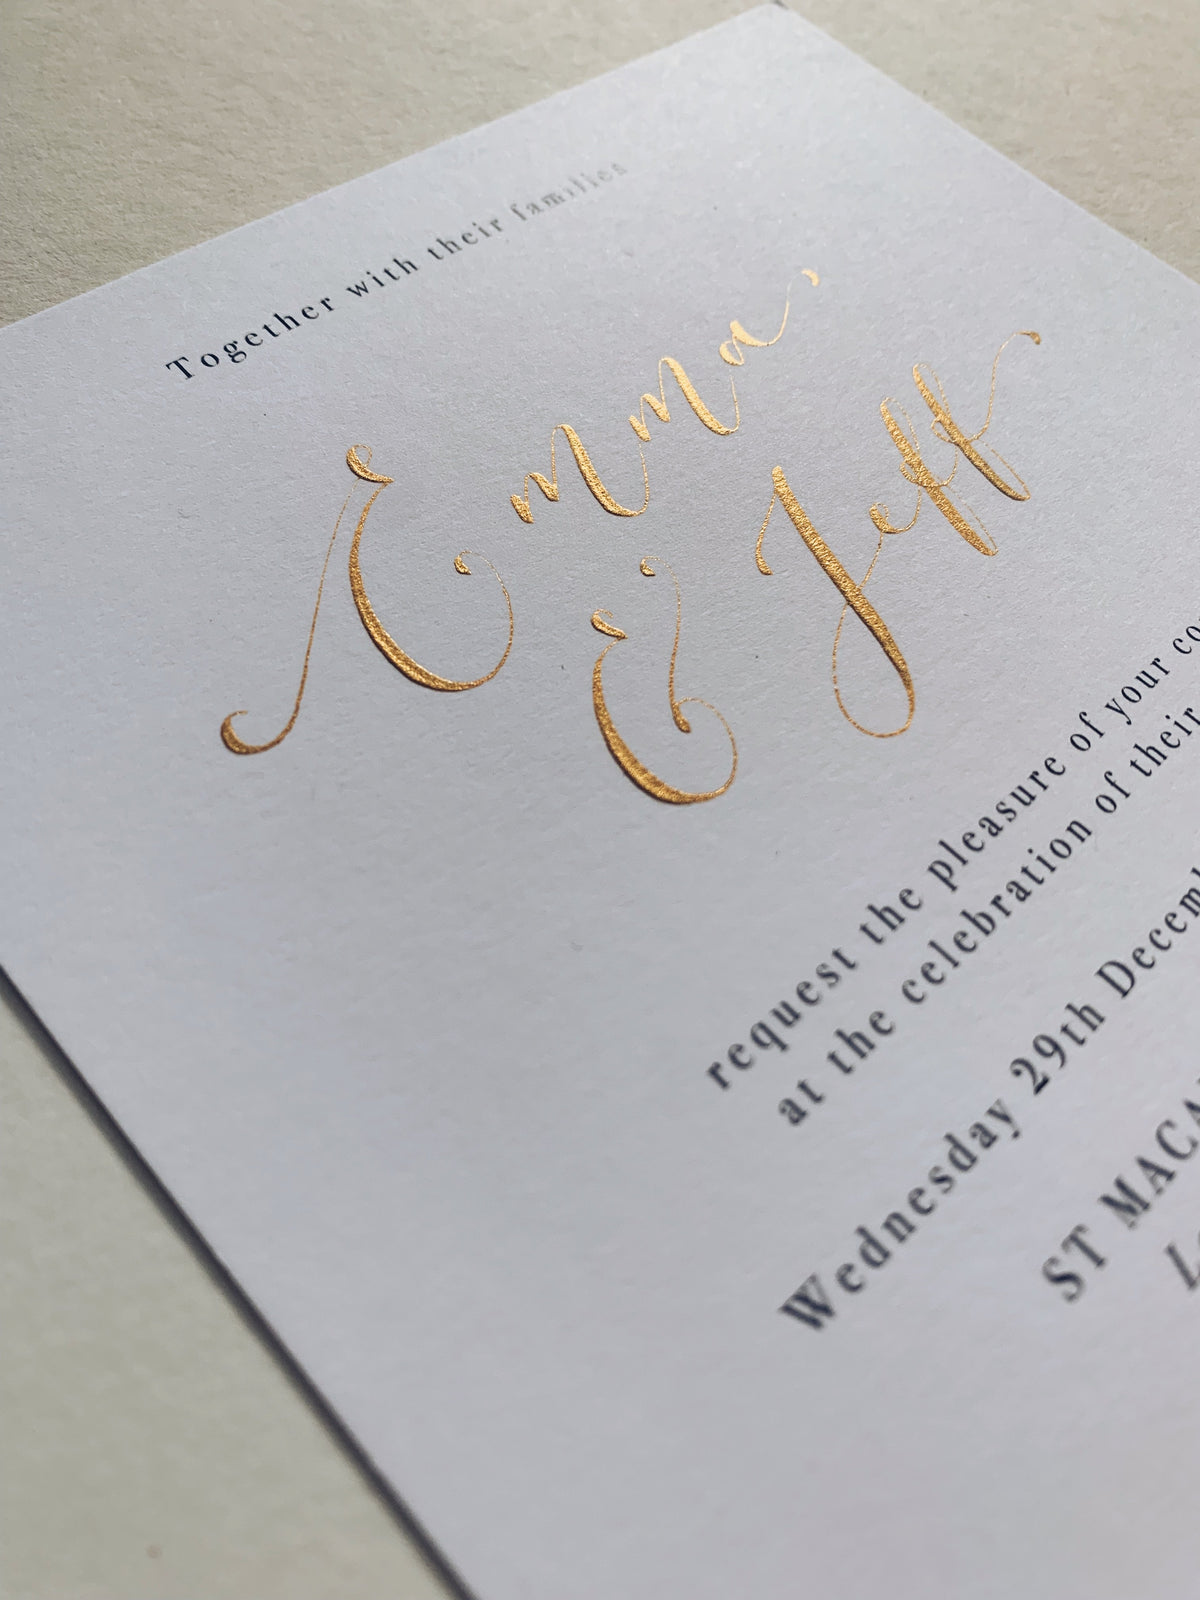 Together with their families
Emma
& Jeff
request the pleasure of your
at the celebration of their
Wednesday 29th
ST